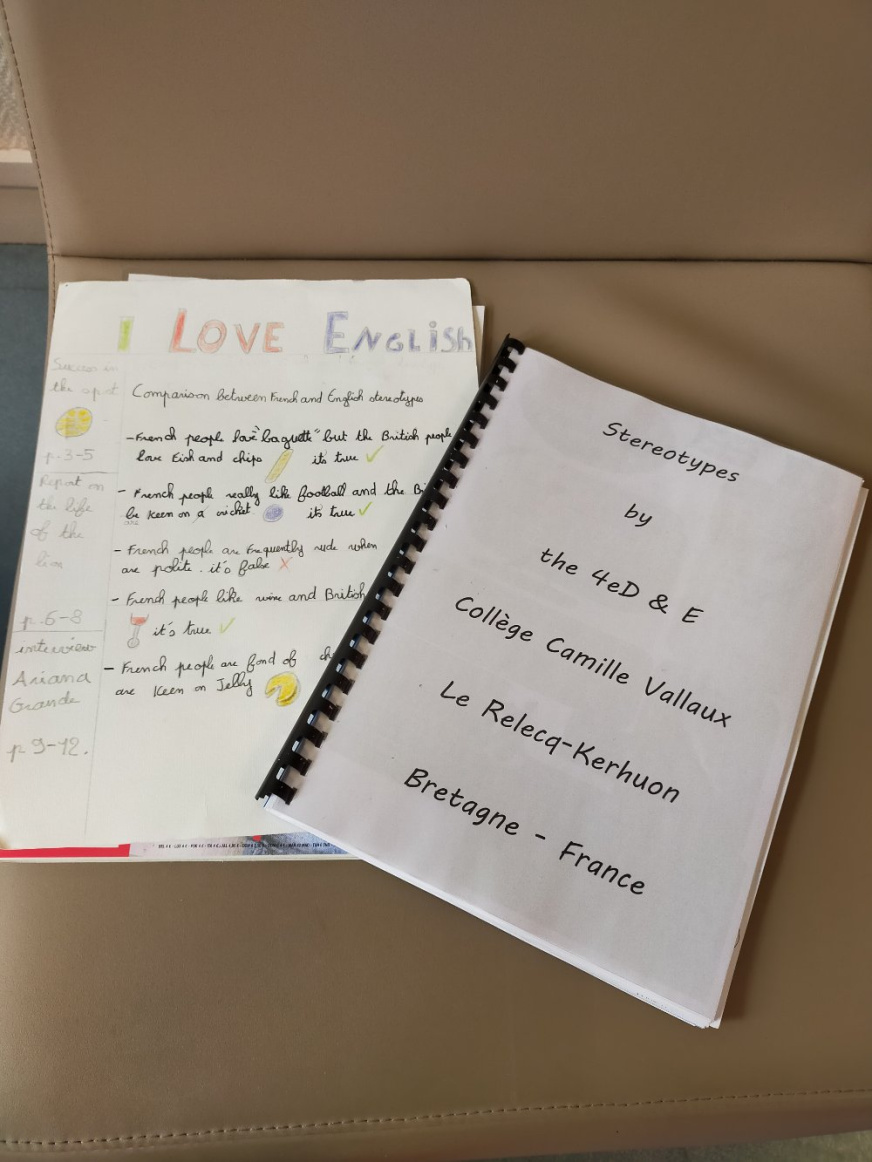 I LOVE ENGLiSH
Success in
the spot
p.3-5
Report on
the life
of the
lion
p.6-8
interview
Ariana
Grande
p 9-12.
Comparison between French and English stereotypes
- French people love "baguette" but the British people
love Fish and chips it's true ✓
- French people really like football and the
be keen on a cricket. it's true ✓
are
- French people are frequently rude when
are polite. it's false ✗
- French people like wine and British
it's true ✓
- French people are fond of
are keen on Jelly
Stereotypes
by
the 4eD & E
Collège Camille Vallaux
Le Relecq-Kerhuon
Bretagne - France